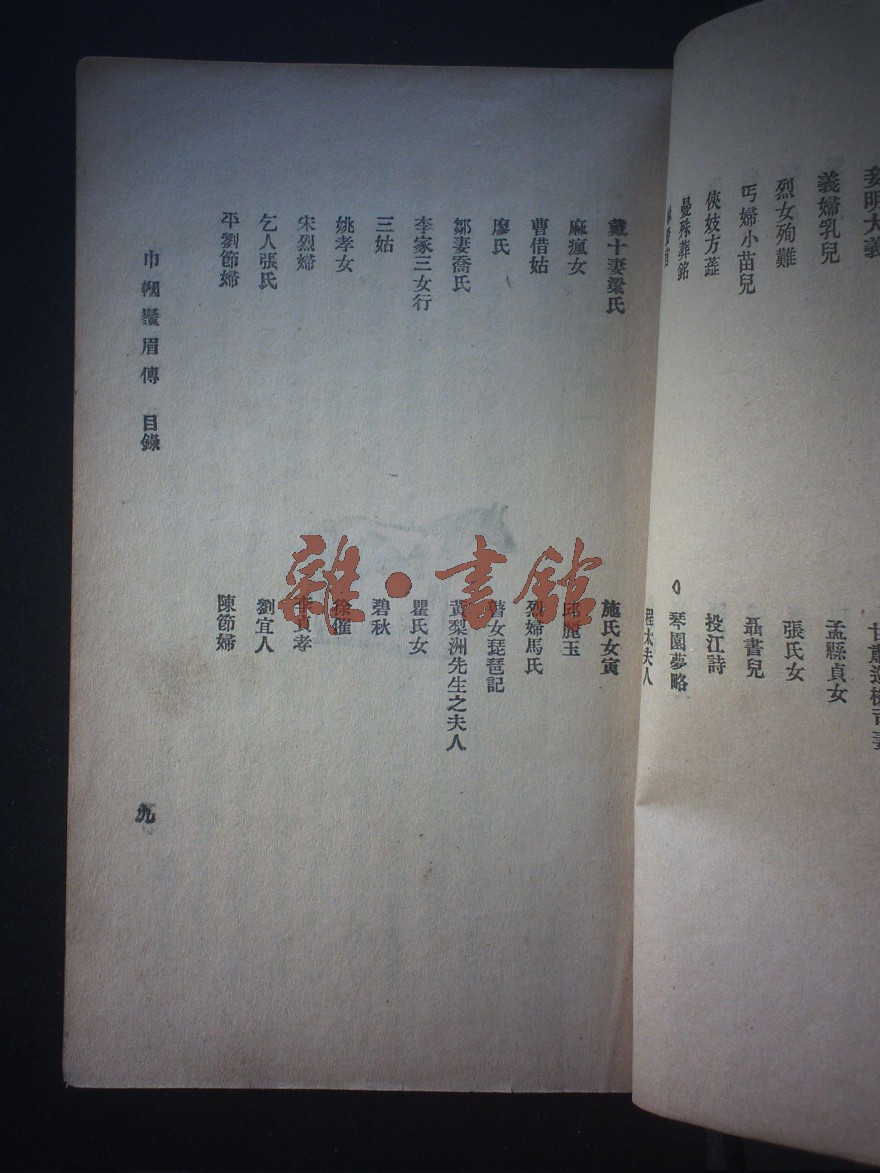 妾明大義
義婦乳兒
烈女殉難
丐婦小苗兒
俠妓方蓮
曼殊葬銘
孟縣貞女
張氏女
聶書兒
投江詩
琴園夢略
程太夫人
戴十妻梁氏
麻瘋女
曹借姑
廖氏
鄒妻喬氏
李家三女行
三姑
姚孝女
宋烈婦
乞人張氏
平劉節婦
施氏女寅
邱麗玉
烈婦馬氏
瞽女琵琶記
黃梨洲先生之夫人
瞿氏女
碧秋
徐催
李貞孝
劉宜人
陳節婦
巾幗鬚眉傳 目錄
九
雜·書館